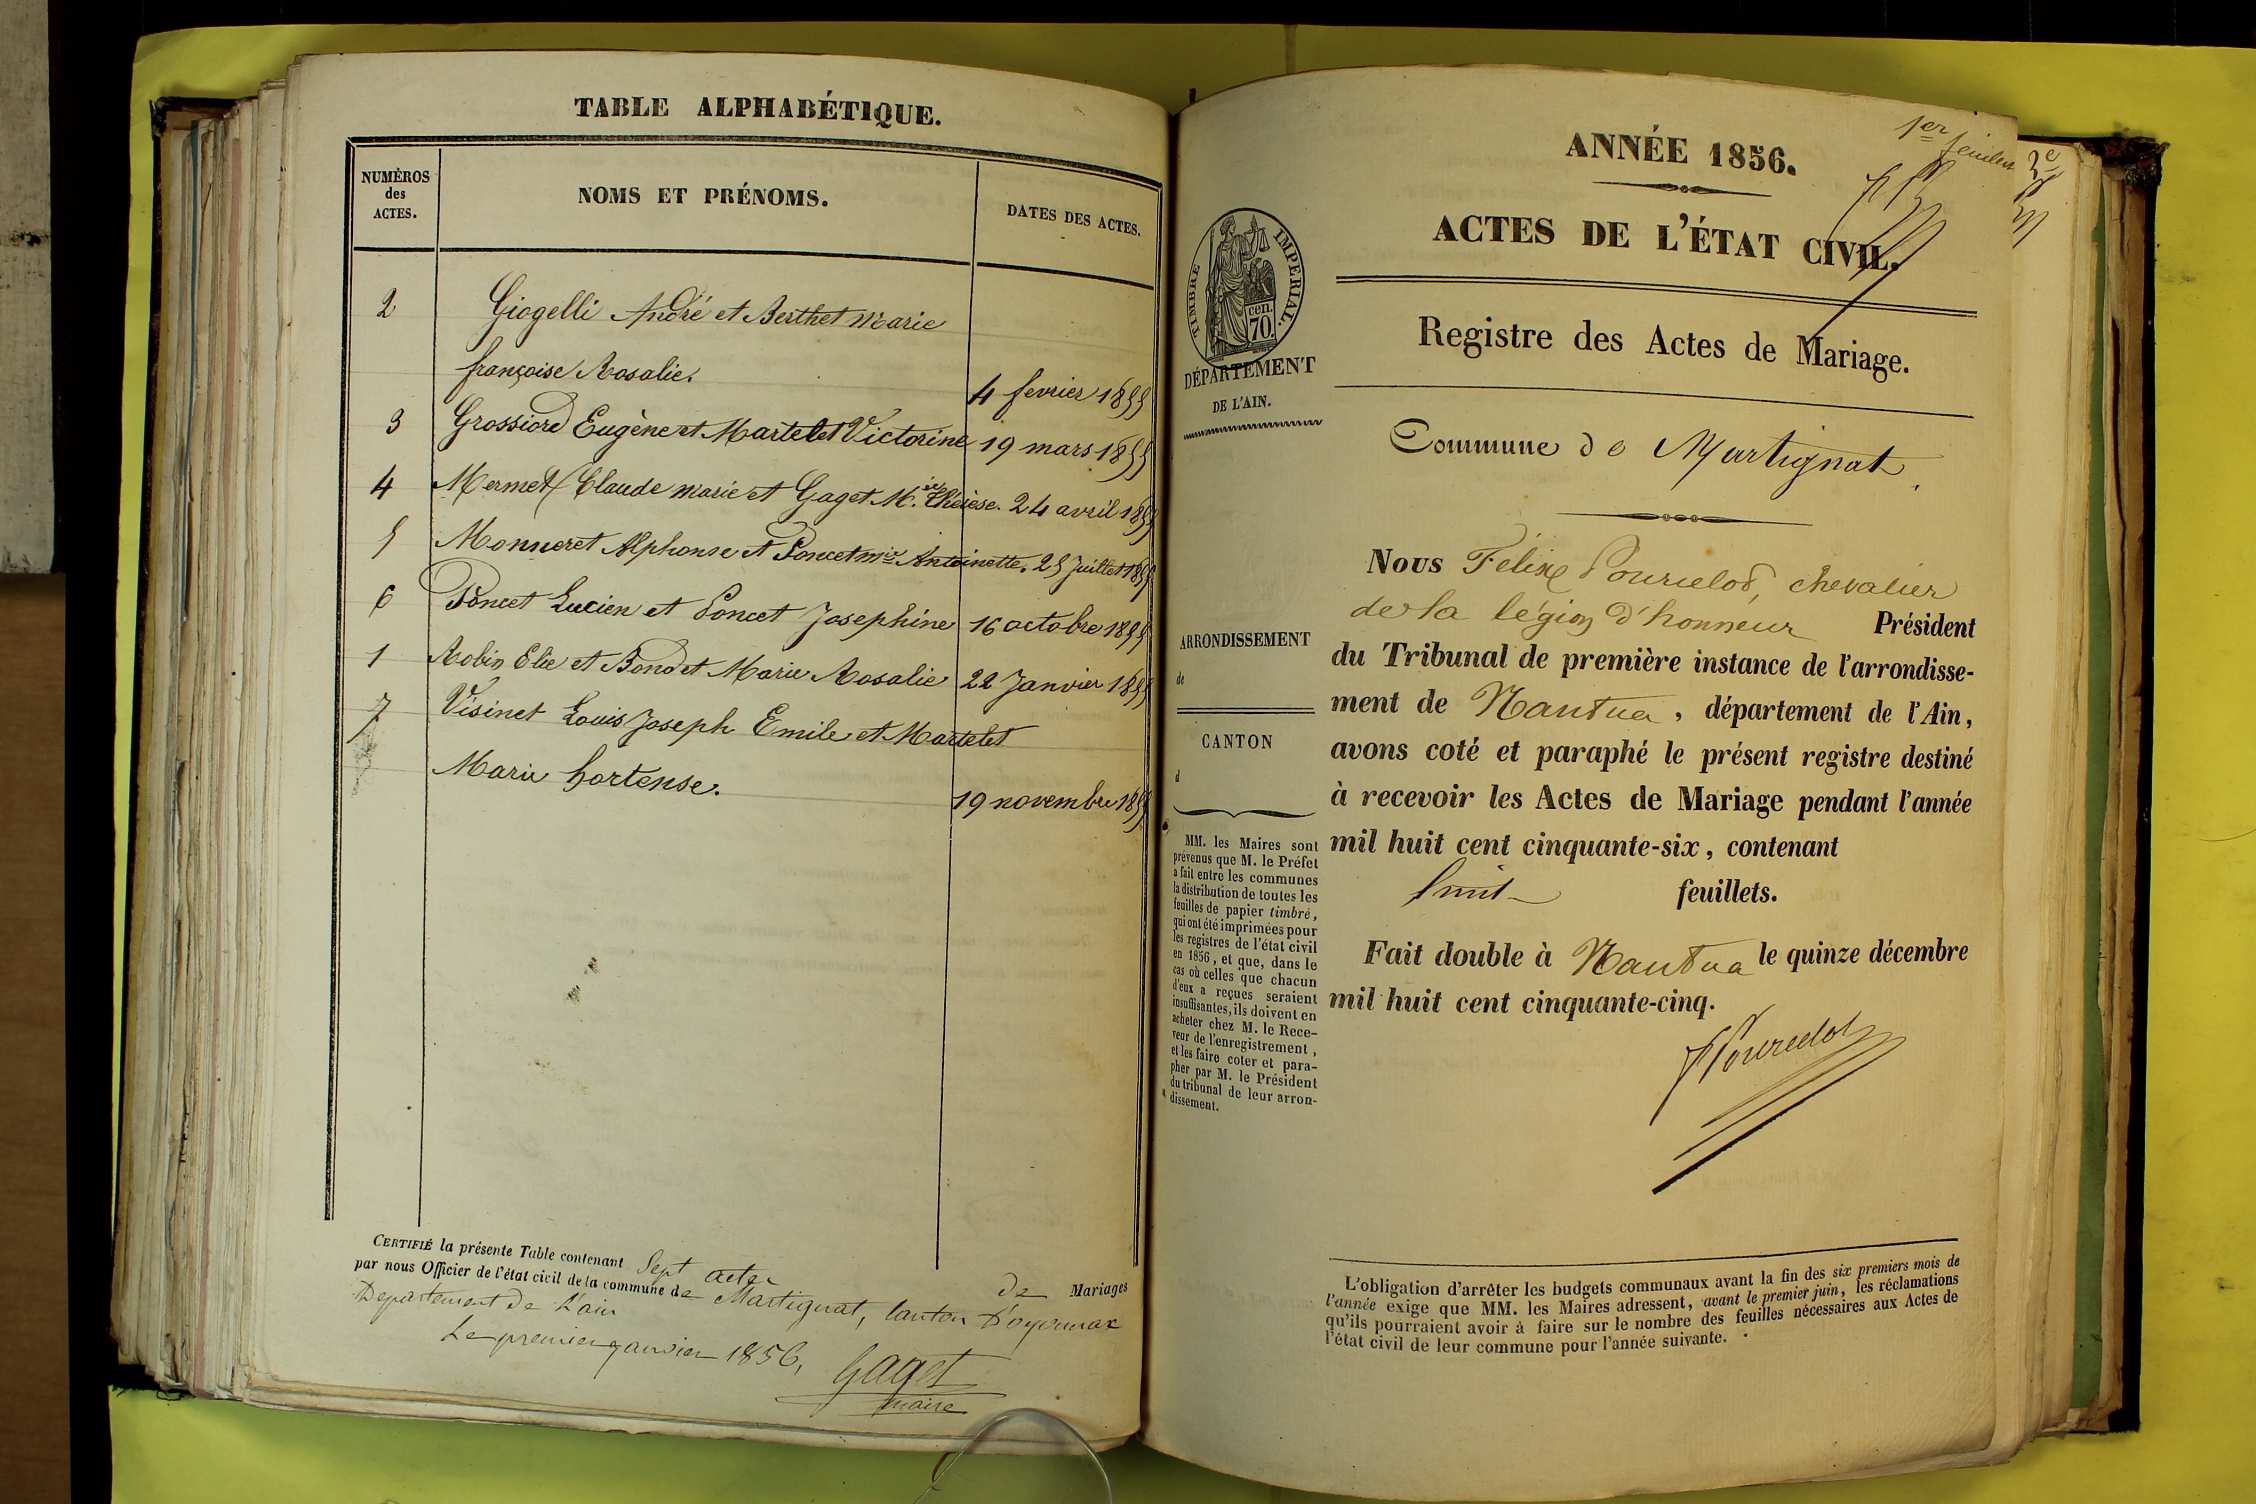 TABLE ALPHABÉTIQUE.
NUMÉROS des ACTES.
NOMS ET PRÉNOMS.
DATES DES ACTES.
2 Giogelli André et Berthet Marie
françoise Rosalie. 4 fevrier 1855
3 Grossiord Eugène et Martelet Victorine 19 mars 1855
4 Mermet Claude marie et Gaget M.ie Thérèse. 24 avril 1855
5 Monneret Alphonse et Poncet mie Antoinette. 25 Juillet 1855
6 Poncet Lucien et Poncet Josephine 16 octobre 1855
1 Robin Elie et Bondet Marie Rosalie 22 Janvier 1855
7 Visinet Louis Joseph Emile et Martelet
Marie hortense. 19 novembre 1855
CERTIFIÉ la présente Table contenant Sept actes de Mariages
par nous Officier de l'état civil de la commune de Martignat, Canton D'oyonnax
Departement de L'ain
Le premier janvier 1856,
Gaget
maire
1er feuillet
2e
ANNÉE 1856.
ACTES DE L'ÉTAT CIVIL.
TIMBRE IMPERIAL.
70 cen.
DÉPARTEMENT
DE L'AIN.
Registre des Actes de Mariage.
Commune de Martignat.
Nous Félix Pourcelot, chevalier
de la légion d'honneur Président
du Tribunal de première instance de l'arrondisse-
ment de Nantua, département de l'Ain,
avons coté et paraphé le présent registre destiné
à recevoir les Actes de Mariage pendant l'année
mil huit cent cinquante-six, contenant
huit feuillets.
Fait double à Nantua le quinze décembre
mil huit cent cinquante-cinq.
Pourcelot
ARRONDISSEMENT
de
CANTON
d
MM. les Maires sont
prévenus que M. le Préfet
a fait entre les communes
la distribution de toutes les
feuilles de papier timbré,
qui ont été imprimées pour
les registres de l'état civil
en 1856, et que, dans le
cas où celles que chacun
d'eux a reçues seraient
insuffisantes, ils doivent en
acheter chez M. le Rece-
veur de l'enregistrement,
et les faire coter et para-
pher par M. le Président
du tribunal de leur arron-
dissement.
L'obligation d'arrêter les budgets communaux avant la fin des six premiers mois de
l'année exige que MM. les Maires adressent, avant le premier juin, les réclamations
qu'ils pourraient avoir à faire sur le nombre des feuilles nécessaires aux Actes de
l'état civil de leur commune pour l'année suivante.